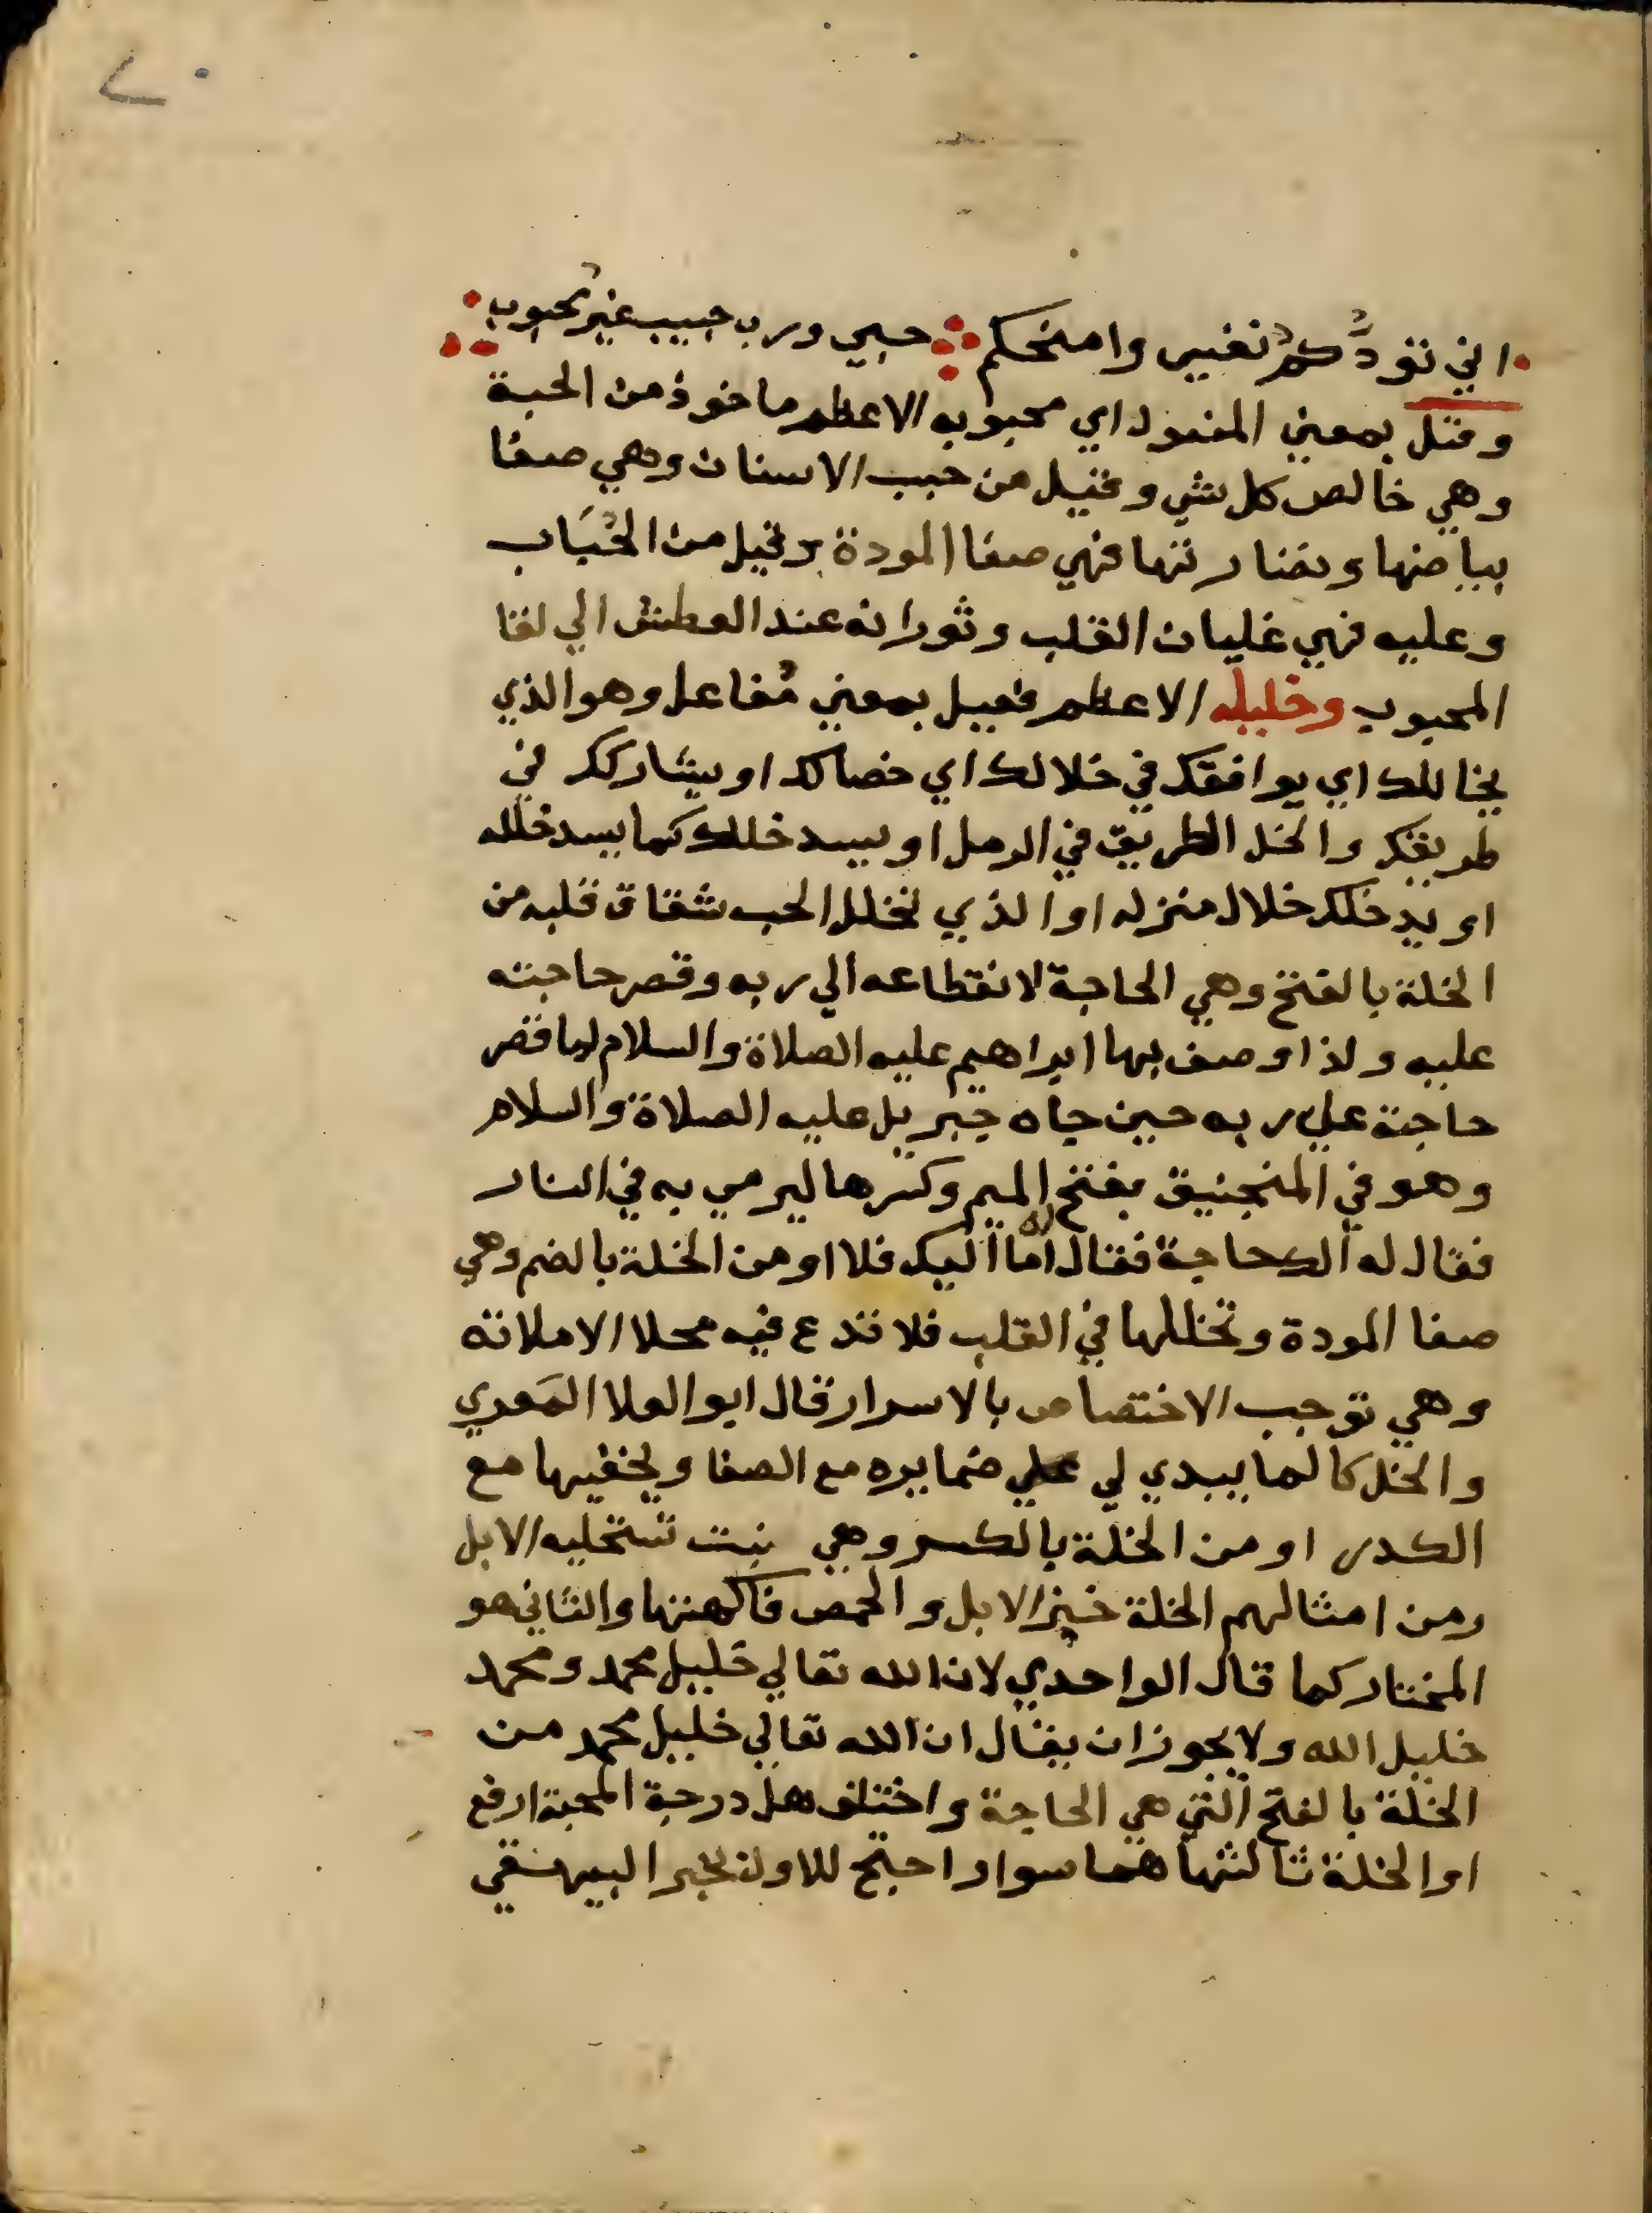 ٧٠
اني تودكم نفسي وامنحكم حبي ورب حبيب غير محبوب
وقيل بمعني المفعول اي محبوبه الاعظم ماخوذ من الحبة
وهي خالص كل شي وقيل من حبب الاسنان وهي صفا
بياضها ونضارتها فهي صفا المودة وقيل من الحُبَاب
وعليه فهي غليان القلب وثورانه عند العطش الي لقا
المحبوب وخليله الاعظم فعيل بمعني مُفاعل وهو الذي
يخاللك اي يوافقك في خلالك اي خصالك او يشاركك في
طريقك والخل الطريق في الرمل او يسد خللك كما يسد خلله
او يدخلك خلال منزله او الذي تخلل الحب شقاق قلبه من
الخلة بالفتح وهي الحاجة لانقطاعه الي ربه وقصر حاجته
عليه ولذا وصف بها ابراهيم عليه الصلاة والسلام لما قصر
حاجته علي ربه حين جاه جبريل عليه الصلاة والسلام
وهو في المنجنيق بفتح الميم وكسرها ليرمي به في النار
فقال له ألك حاجة فقال له أما اليك فلا او من الخلة بالضم وهي
صفا المودة وتخللها في القلب فلا تدع فيه محلا الا ملاته
وهي توجب الاختصاص بالاسرار قال ابو العلا المَعري
والخل كالما يبدي لي علي ضمايره مع الصفا ويخفيها مع
الكدر او من الخلة بالكسر وهي نبت تستخليه الابل
ومن امثالهم الخلة خبز الابل والحمض فاكهتها والثاني هو
المختار كما قال الواحدي لان الله تعالي خليل محمد ومحمد
خليل الله ولا يجوز ان يقال ان الله تعالي خليل محمد من
الخلة بالفتح التي هي الحاجة واختلف هل درجة المحبة ارفع
او الخلة ثالثها هما سوا واحتج للاول بخبر البيهقي